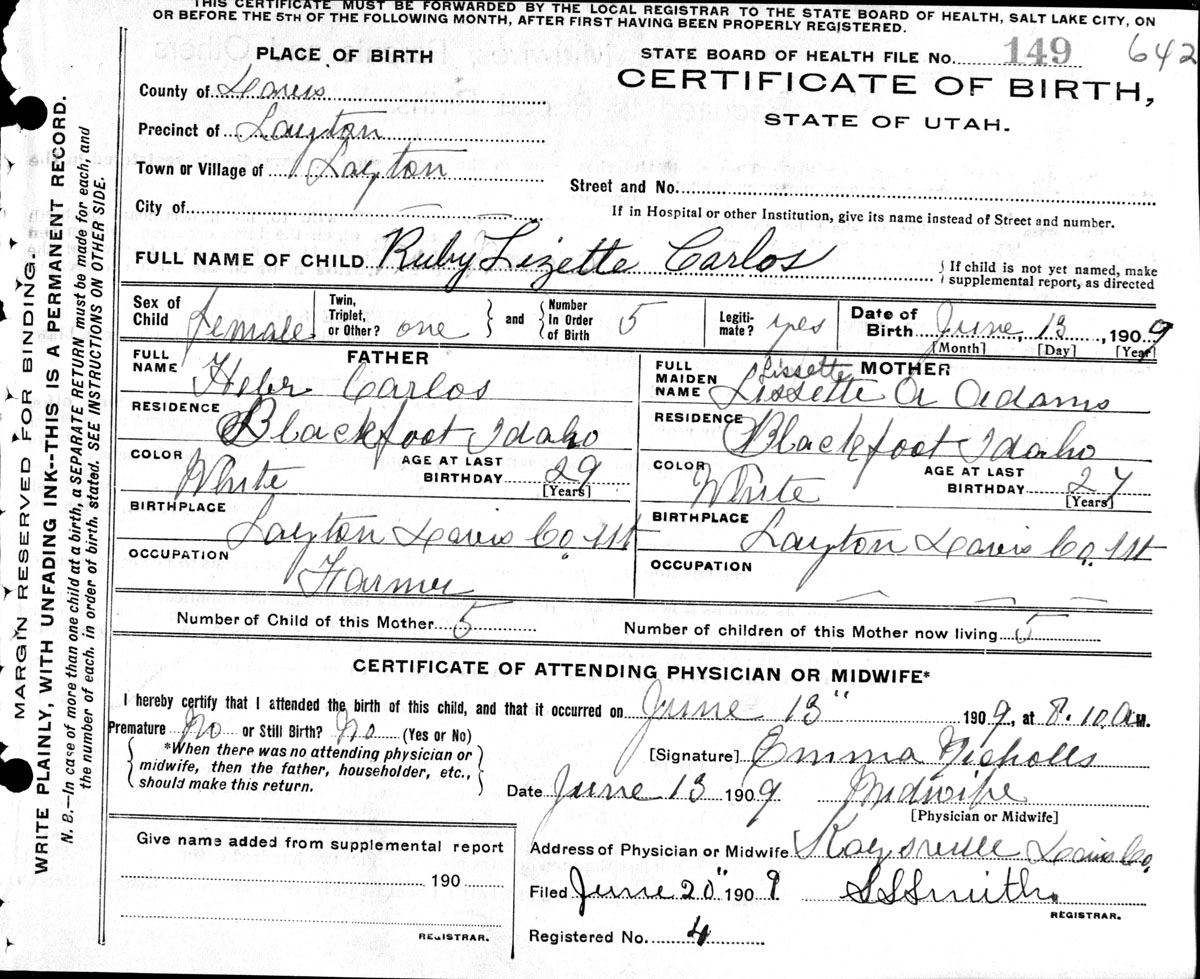 THIS CERTIFICATE MUST BE FORWARDED BY THE LOCAL REGISTRAR TO THE STATE BOARD OF HEALTH, SALT LAKE CITY, ON
OR BEFORE THE 5TH OF THE FOLLOWING MONTH, AFTER FIRST HAVING BEEN PROPERLY REGISTERED.
PLACE OF BIRTH
STATE BOARD OF HEALTH FILE No. 149 642
CERTIFICATE OF BIRTH,
STATE OF UTAH.
County of Davis
Precinct of Layton
Town or Village of Layton
Street and No.
City of
If in Hospital or other Institution, give its name instead of Street and number.
FULL NAME OF CHILD Ruby Lizette Carlos
If child is not yet named, make
supplemental report, as directed
Sex of Child Female
Twin, Triplet, or Other? one
and
Number In Order of Birth 5
Legiti- mate? yes
Date of Birth June, 13, 1909
[Month] [Day] [Year]
FATHER
FULL NAME Heber Carlos
RESIDENCE Blackfoot Idaho
COLOR White
AGE AT LAST BIRTHDAY 29
[Years]
BIRTHPLACE Layton Davis Co. Ut
OCCUPATION Farmer
MOTHER
Lissette
FULL MAIDEN NAME Lissette A Adams
RESIDENCE Blackfoot Idaho
COLOR White
AGE AT LAST BIRTHDAY 27
[Years]
BIRTHPLACE Layton Davis Co. Ut
OCCUPATION
Number of Child of this Mother 5
Number of children of this Mother now living 5
CERTIFICATE OF ATTENDING PHYSICIAN OR MIDWIFE*
I hereby certify that I attended the birth of this child, and that it occurred on June 13" 1909, at 8.10 a.M.
Premature No or Still Birth? No (Yes or No)
*When there was no attending physician or
midwife, then the father, householder, etc.,
should make this return.
[Signature] Emma Nicholls
Date June 13 1909 Midwife
[Physician or Midwife]
Give name added from supplemental report
190
REGISTRAR.
Address of Physician or Midwife Kaysville Davis Co.
Filed June 20" 1909 S S Smith.
REGISTRAR.
Registered No. 4
MARGIN RESERVED FOR BINDING.
WRITE PLAINLY, WITH UNFADING INK--THIS IS A PERMANENT RECORD.
N. B.--In case of more than one child at a birth, a SEPARATE RETURN must be made for each, and
the number of each, in order of birth, stated. SEE INSTRUCTIONS ON OTHER SIDE.